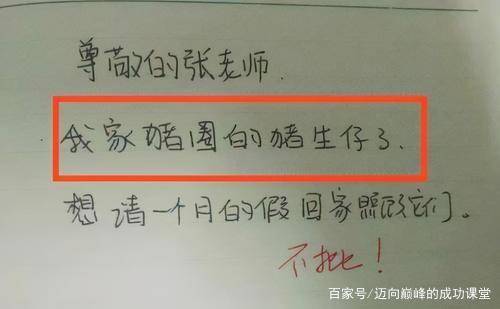 尊敬的张老师.
我家猪圈的猪生仔了.
想请一个月的假回家照顾它们。
不批!
百家号/迈向巅峰的成功课堂